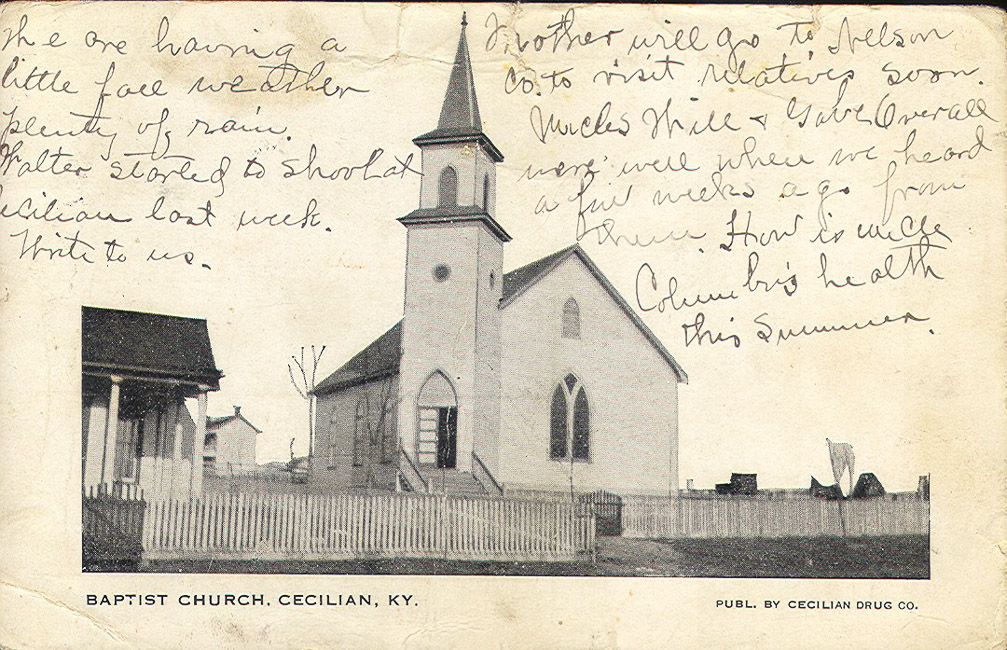 We are having a
little fall weather
plenty of rain.
Walter started to school at
ecilian last week.
Write to us.
Mother will go to Nelson
Co. to visit relatives soon.
Uncles Will & Gabe Overall
were well when we heard
a few weeks ago from
them. How is uncle
Columbus health
this Summer.
BAPTIST CHURCH, CECILIAN, KY.
PUBL. BY CECILIAN DRUG CO.